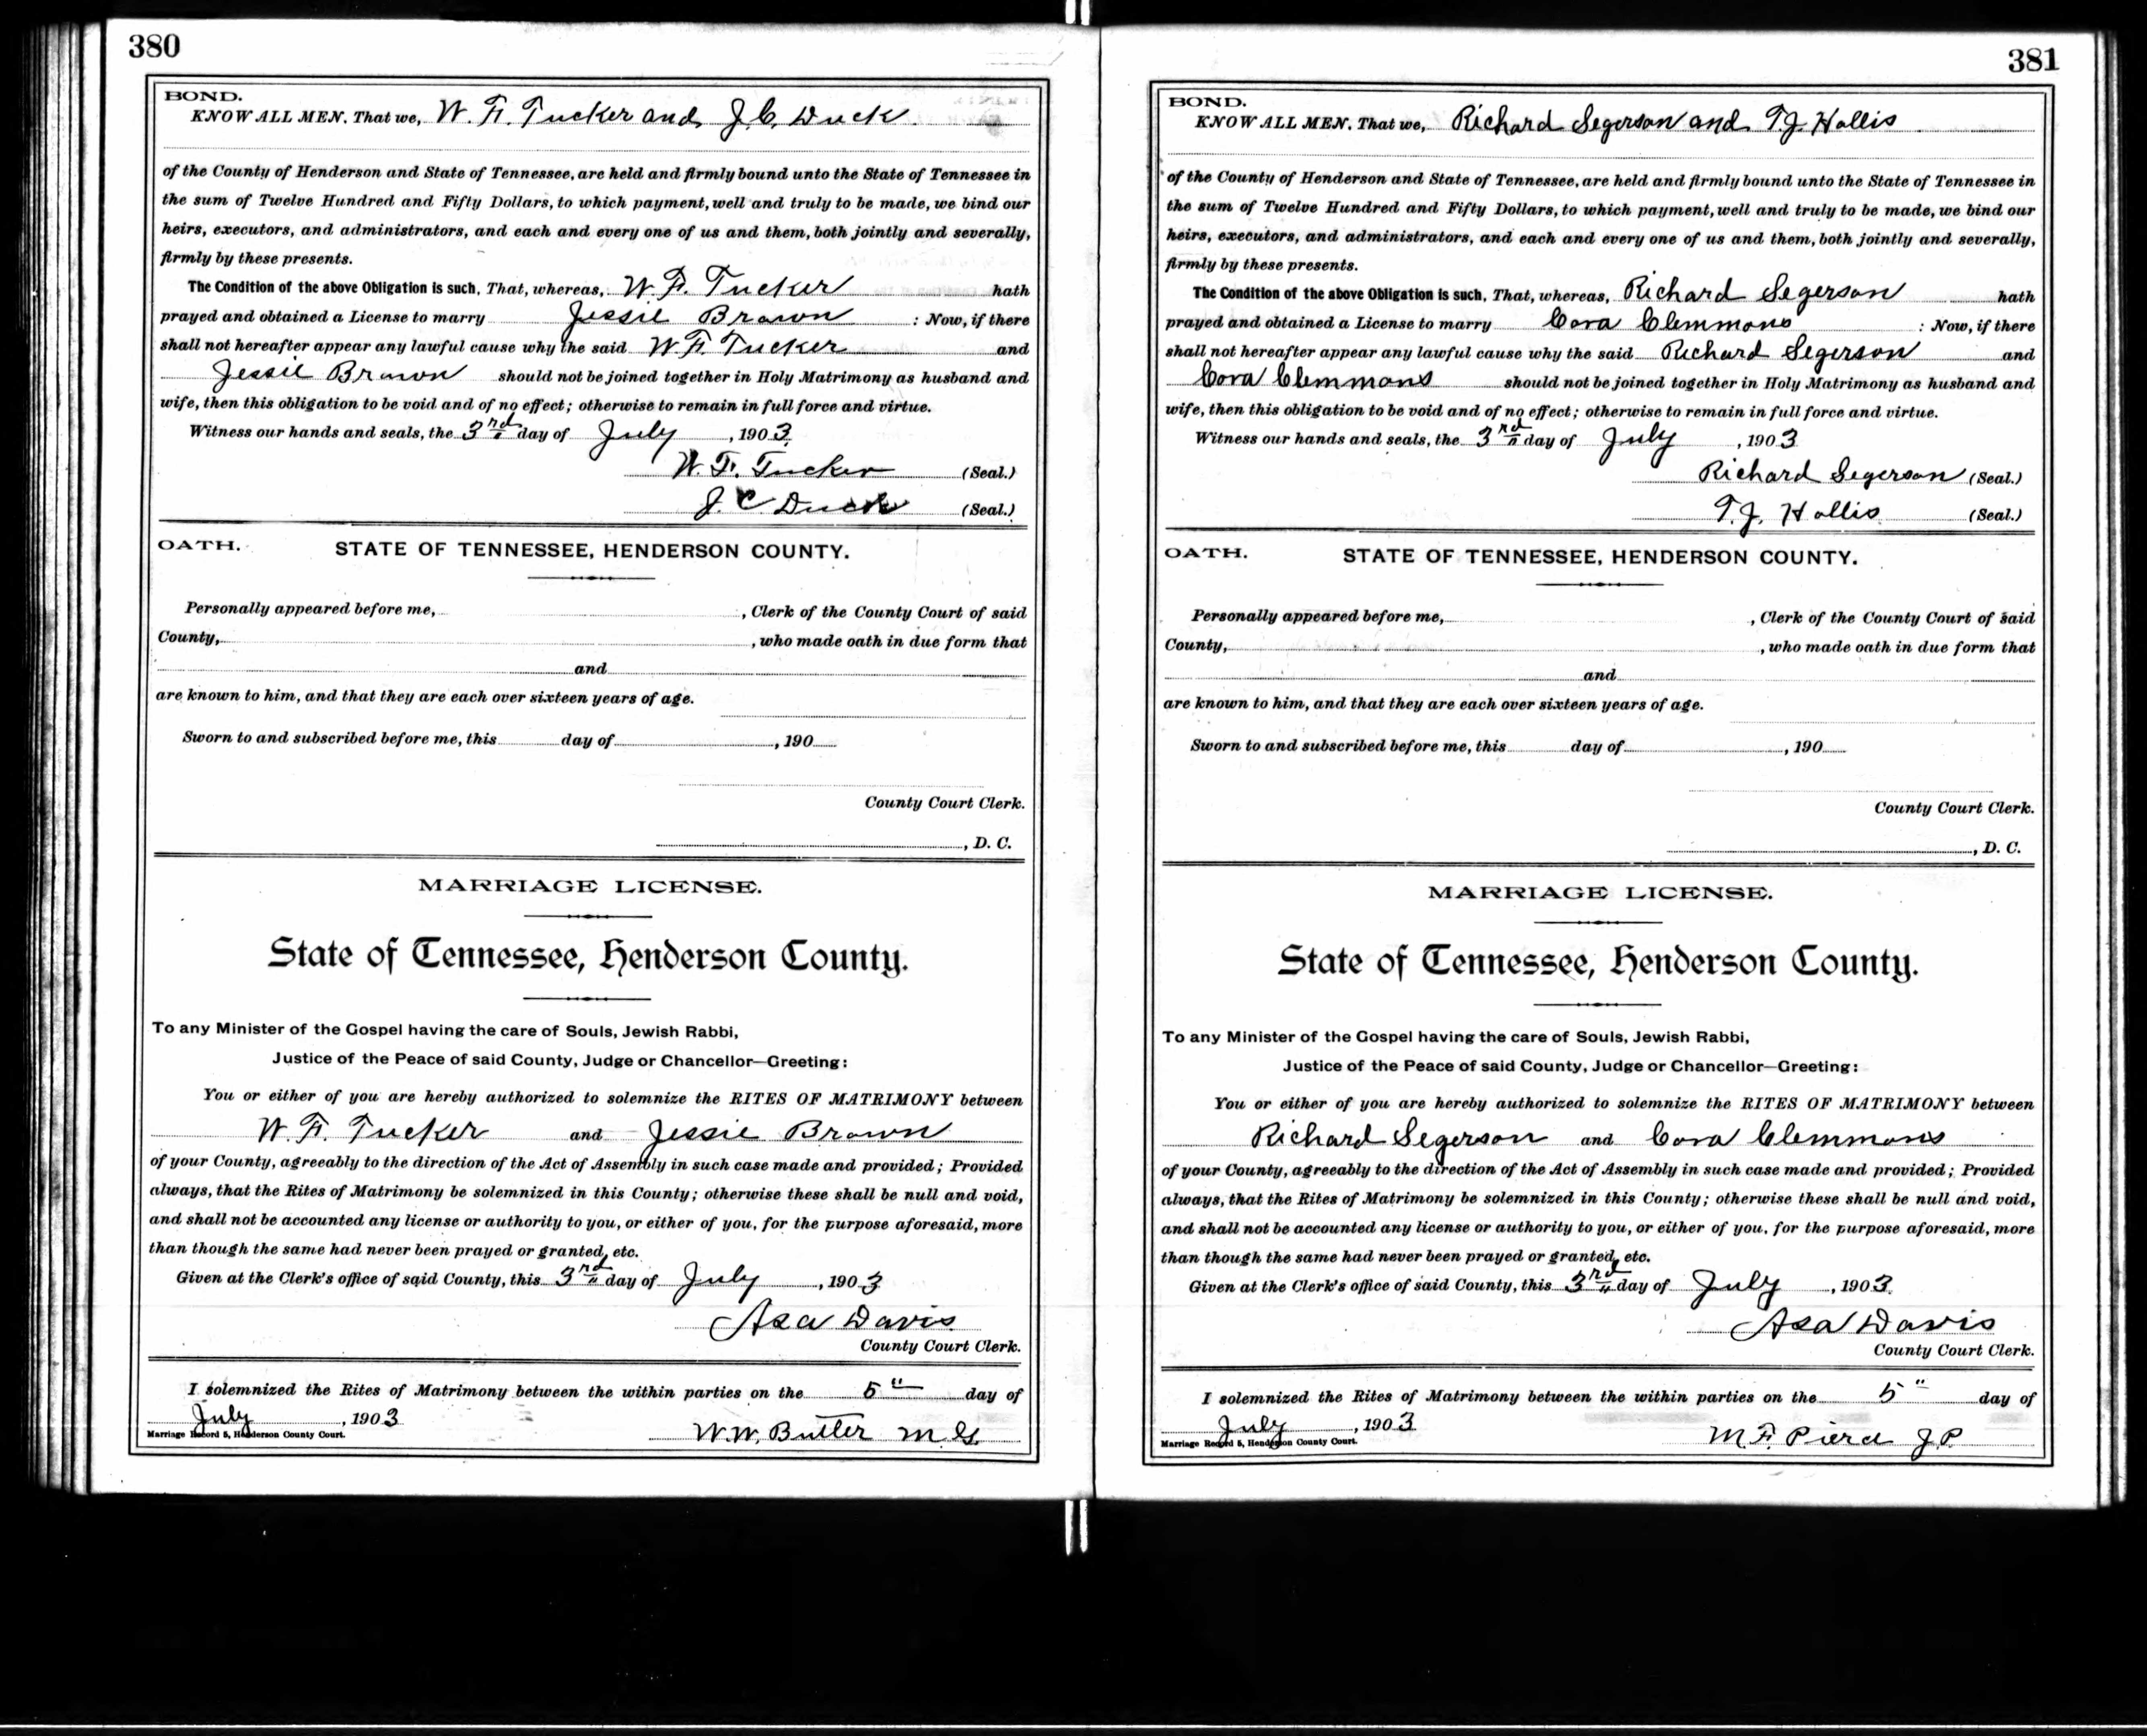 380
BOND.
KNOW ALL MEN. That we, W. F. Tucker and J. C. Duck
of the County of Henderson and State of Tennessee, are held and firmly bound unto the State of Tennessee in
the sum of Twelve Hundred and Fifty Dollars, to which payment, well and truly to be made, we bind our
heirs, executors, and administrators, and each and every one of us and them, both jointly and severally,
firmly by these presents.
The Condition of the above Obligation is such, That, whereas, W. F. Tucker hath
prayed and obtained a License to marry Jessie Brown : Now, if there
shall not hereafter appear any lawful cause why the said W. F. Tucker and
Jessie Brown should not be joined together in Holy Matrimony as husband and
wife, then this obligation to be void and of no effect; otherwise to remain in full force and virtue.
Witness our hands and seals, the 3rd day of July, 1903.
W. F. Tucker (Seal.)
J. C. Duck (Seal.)
OATH. STATE OF TENNESSEE, HENDERSON COUNTY.
Personally appeared before me, , Clerk of the County Court of said
County, , who made oath in due form that
and
are known to him, and that they are each over sixteen years of age.
Sworn to and subscribed before me, this day of , 190
County Court Clerk.
, D. C.
MARRIAGE LICENSE.
State of Tennessee, Henderson County.
To any Minister of the Gospel having the care of Souls, Jewish Rabbi,
Justice of the Peace of said County, Judge or Chancellor—Greeting:
You or either of you are hereby authorized to solemnize the RITES OF MATRIMONY between
W. F. Tucker and Jessie Brown
of your County, agreeably to the direction of the Act of Assembly in such case made and provided; Provided
always, that the Rites of Matrimony be solemnized in this County; otherwise these shall be null and void,
and shall not be accounted any license or authority to you, or either of you, for the purpose aforesaid, more
than though the same had never been prayed or granted, etc.
Given at the Clerk's office of said County, this 3rd day of July, 1903
Asa Davis
County Court Clerk.
I solemnized the Rites of Matrimony between the within parties on the 5" day of
July, 1903
W. W. Butler M. G.
Marriage Record 5, Henderson County Court.
381
BOND.
KNOW ALL MEN. That we, Richard Segerson and T. J. Hollis
of the County of Henderson and State of Tennessee, are held and firmly bound unto the State of Tennessee in
the sum of Twelve Hundred and Fifty Dollars, to which payment, well and truly to be made, we bind our
heirs, executors, and administrators, and each and every one of us and them, both jointly and severally,
firmly by these presents.
The Condition of the above Obligation is such, That, whereas, Richard Segerson hath
prayed and obtained a License to marry Cora Clemmons : Now, if there
shall not hereafter appear any lawful cause why the said Richard Segerson and
Cora Clemmons should not be joined together in Holy Matrimony as husband and
wife, then this obligation to be void and of no effect; otherwise to remain in full force and virtue.
Witness our hands and seals, the 3rd day of July, 1903
Richard Segerson (Seal.)
T. J. Hollis (Seal.)
OATH. STATE OF TENNESSEE, HENDERSON COUNTY.
Personally appeared before me, , Clerk of the County Court of said
County, , who made oath in due form that
and
are known to him, and that they are each over sixteen years of age.
Sworn to and subscribed before me, this day of , 190
County Court Clerk.
, D. C.
MARRIAGE LICENSE.
State of Tennessee, Henderson County.
To any Minister of the Gospel having the care of Souls, Jewish Rabbi,
Justice of the Peace of said County, Judge or Chancellor—Greeting:
You or either of you are hereby authorized to solemnize the RITES OF MATRIMONY between
Richard Segerson and Cora Clemmons
of your County, agreeably to the direction of the Act of Assembly in such case made and provided; Provided
always, that the Rites of Matrimony be solemnized in this County; otherwise these shall be null and void,
and shall not be accounted any license or authority to you, or either of you, for the purpose aforesaid, more
than though the same had never been prayed or granted, etc.
Given at the Clerk's office of said County, this 3rd day of July, 1903.
Asa Davis
County Court Clerk.
I solemnized the Rites of Matrimony between the within parties on the 5" day of
July, 1903
M. F. Pierce J. P.
Marriage Record 5, Henderson County Court.